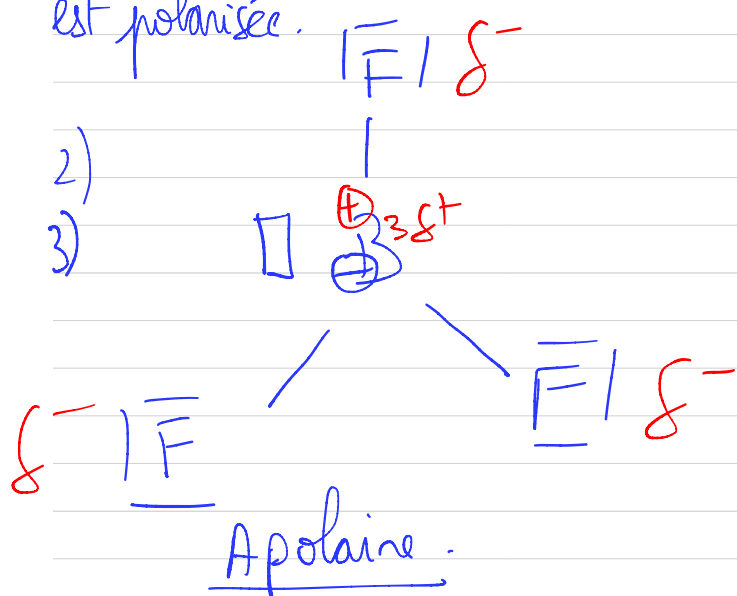 est polarisée.
|F| δ-
2)
3) ⊕ B 3δ+
⊖
F| δ-
δ- |F
Apolaire.